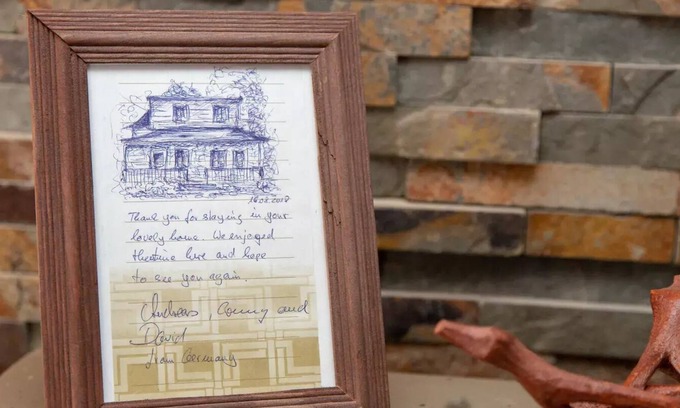 16.08.2018
Thank you for staying in your
lovely home. We enjoyed
the time here and hope
to see you again.
Andreas, Conny and
David
from Germany